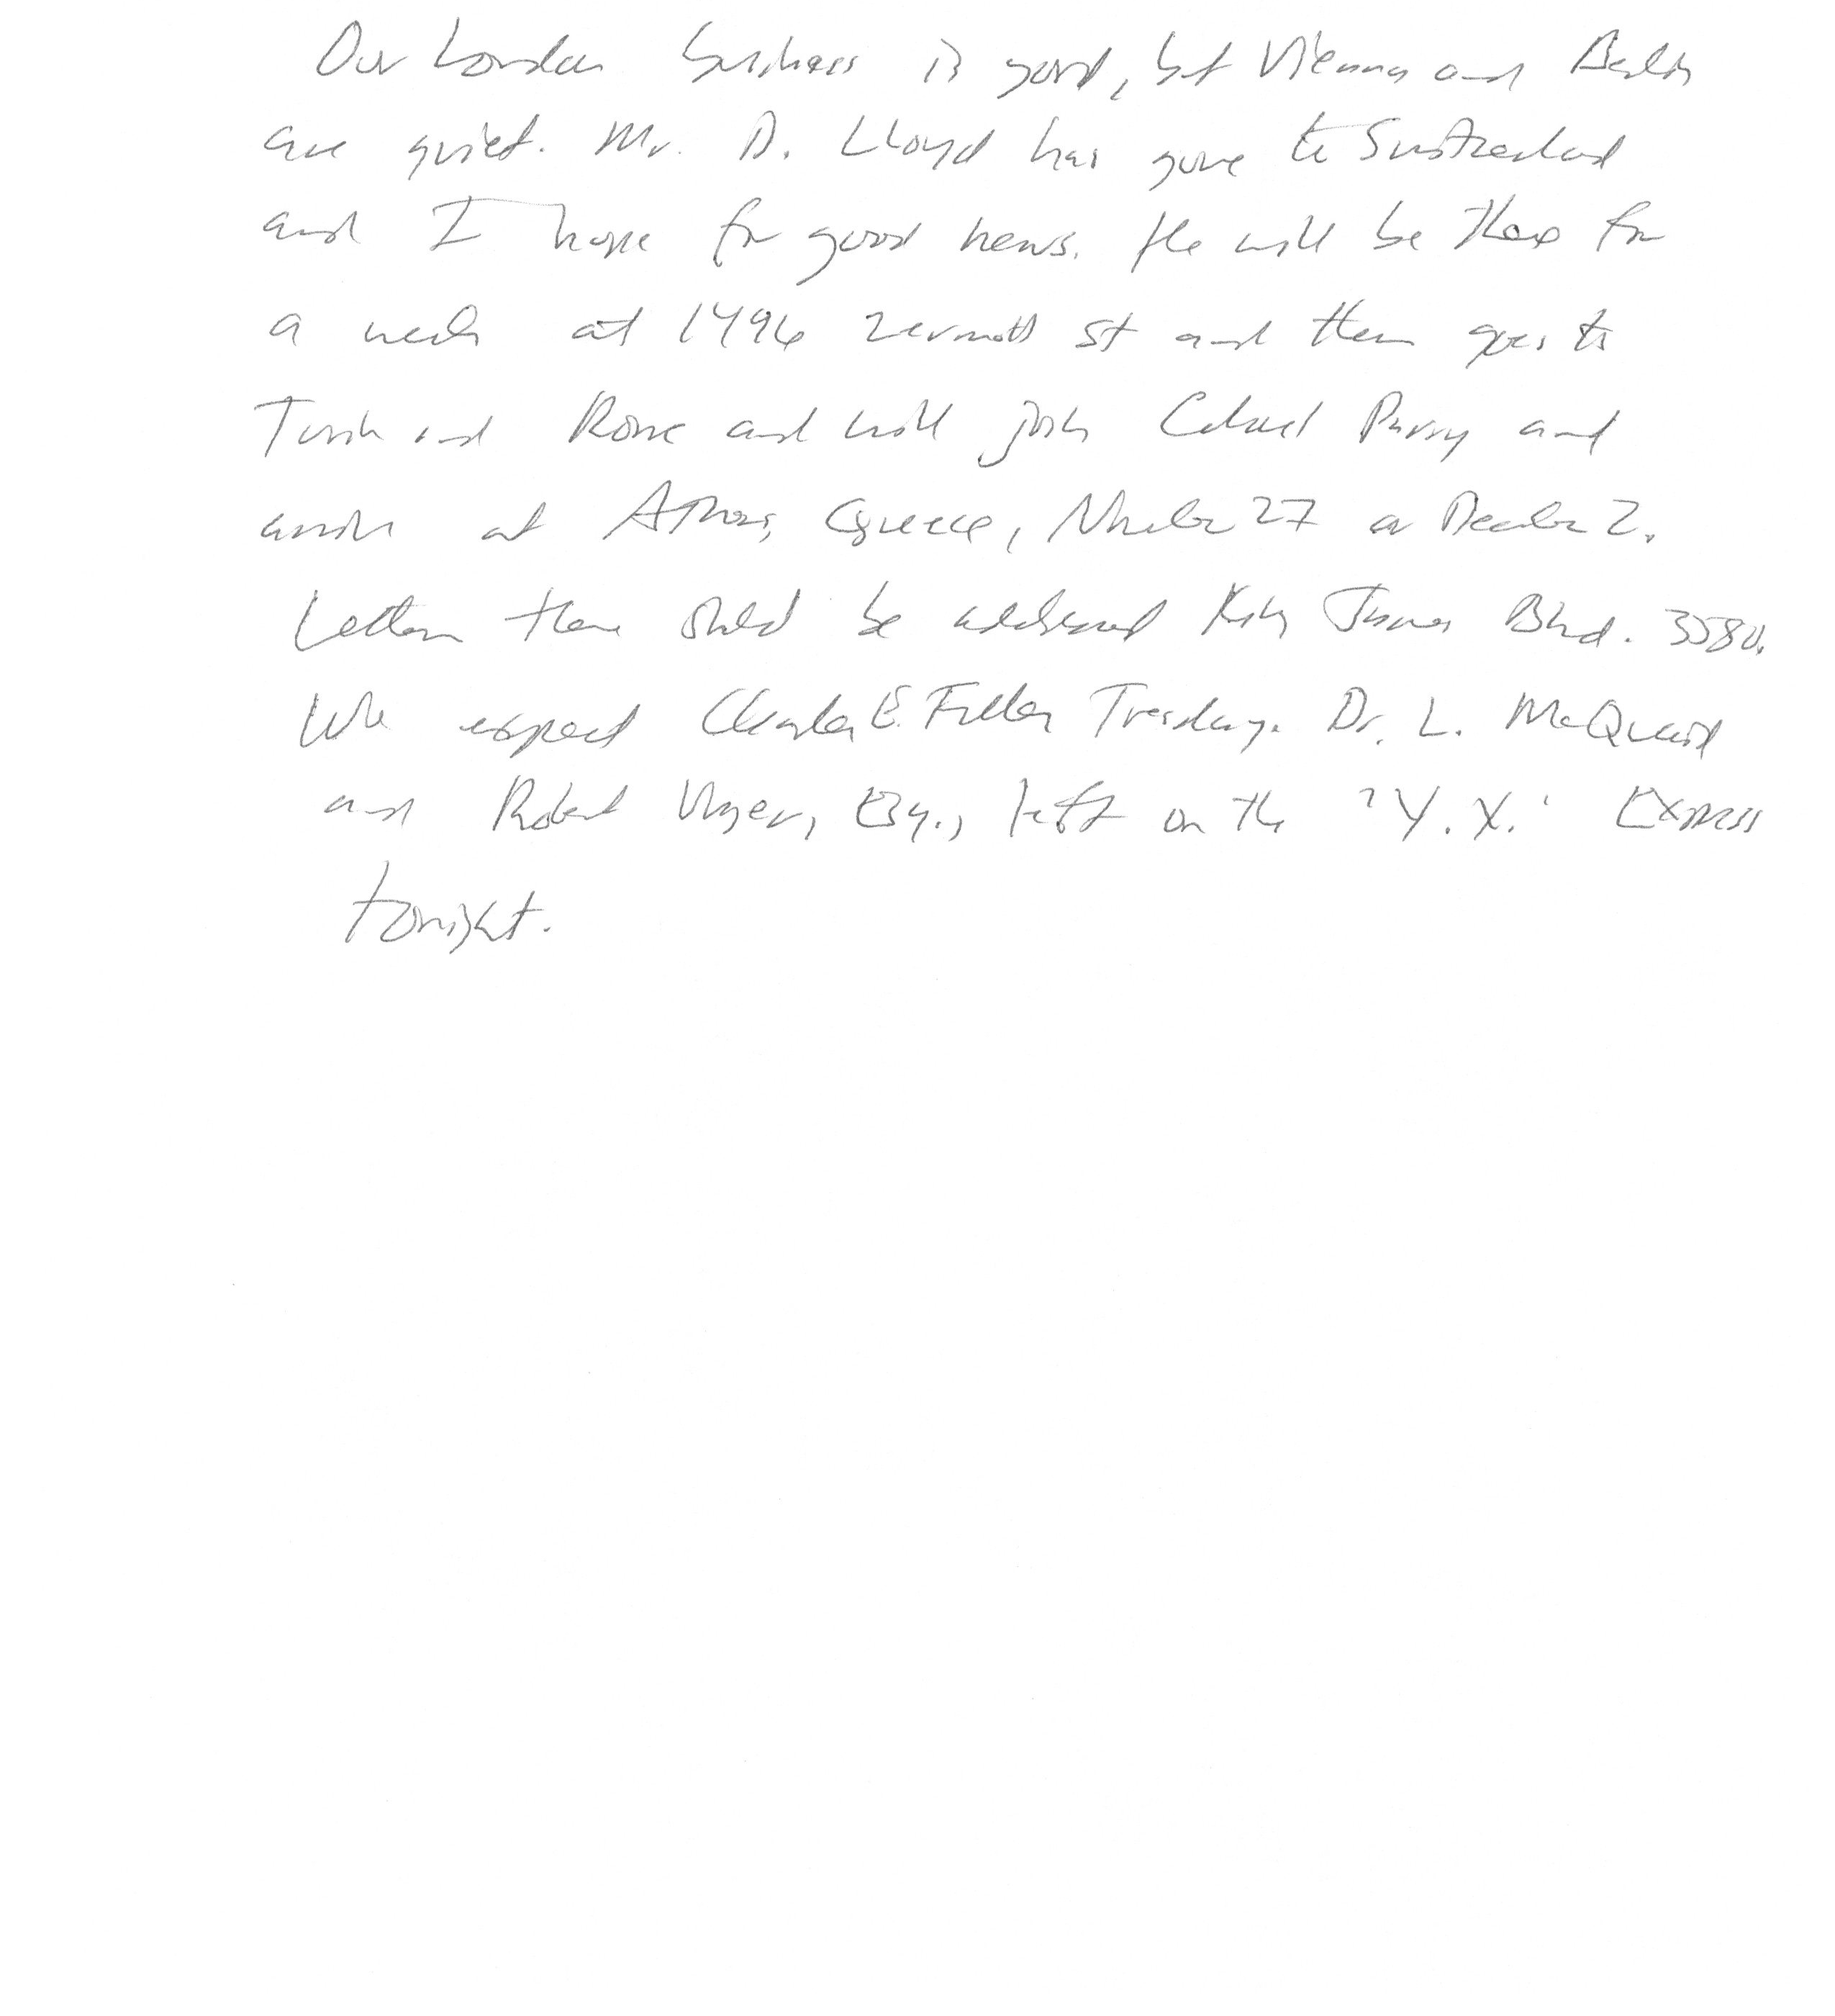 Our London business is good, but Vienna and Berlin
are quiet. Mr. D. Lloyd has gone to Switzerland
and I hope for good news. He will be there for
a week at 1496 Zermott St and then goes to
Turin and Rome and will join Colonel Parry and
arrive at Athens, Greece, November 27 or December 2.
Letters there should be addressed King James Blvd. 3580.
We expect Charles E. Fuller Tuesday. Dr. L. McQuaid
and Robert Unger, Esq., left on the 'Y.X.' Express
tonight.